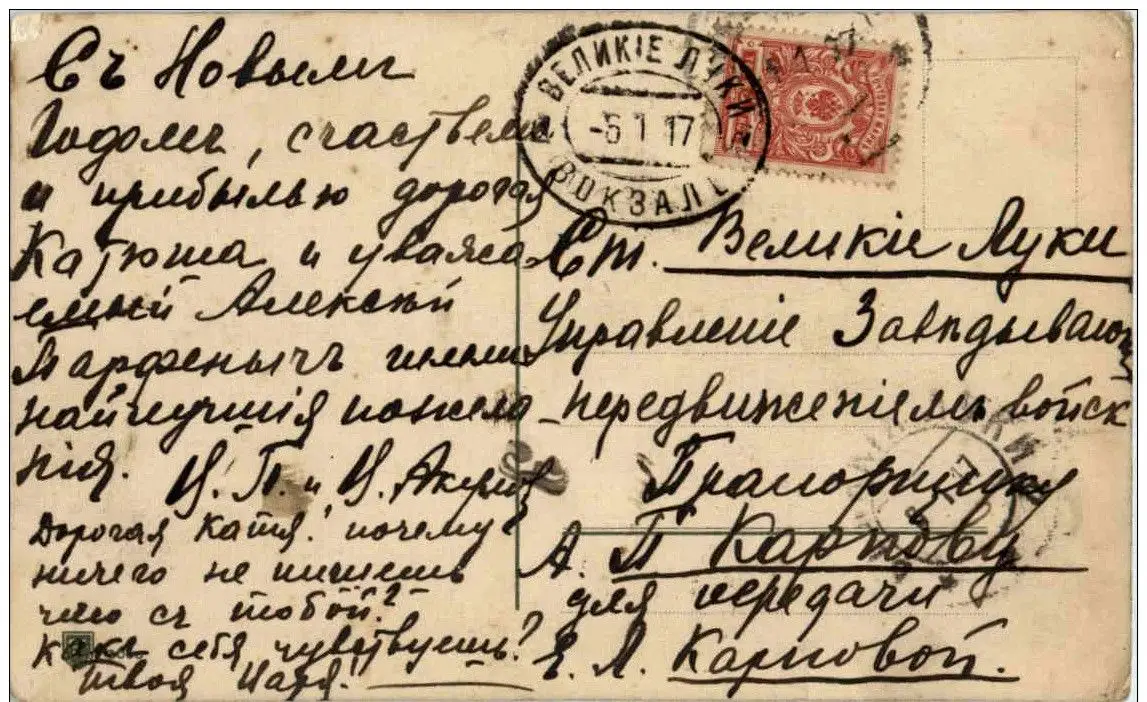 Съ Новымъ
Годомъ, счастьемъ
и прибылью дорогая
Катюша и уважа-
емый Алексѣй
Парфенычъ шлемъ
наилучшія пожела
нія.
Дорогая Катя! почему
ничего не пишешь
что съ тобой?
Какъ себя чувствуешь?
твоя
ВЕЛИКІЕ ЛУКИ
-5 1 17
ВОКЗАЛЪ
Ст. Великіе Луки
Управленіе Завѣдывающ
передвиженіемъ войск
Прапорщику
А. П Карпову
для передачи
Е. Л. Карповой.